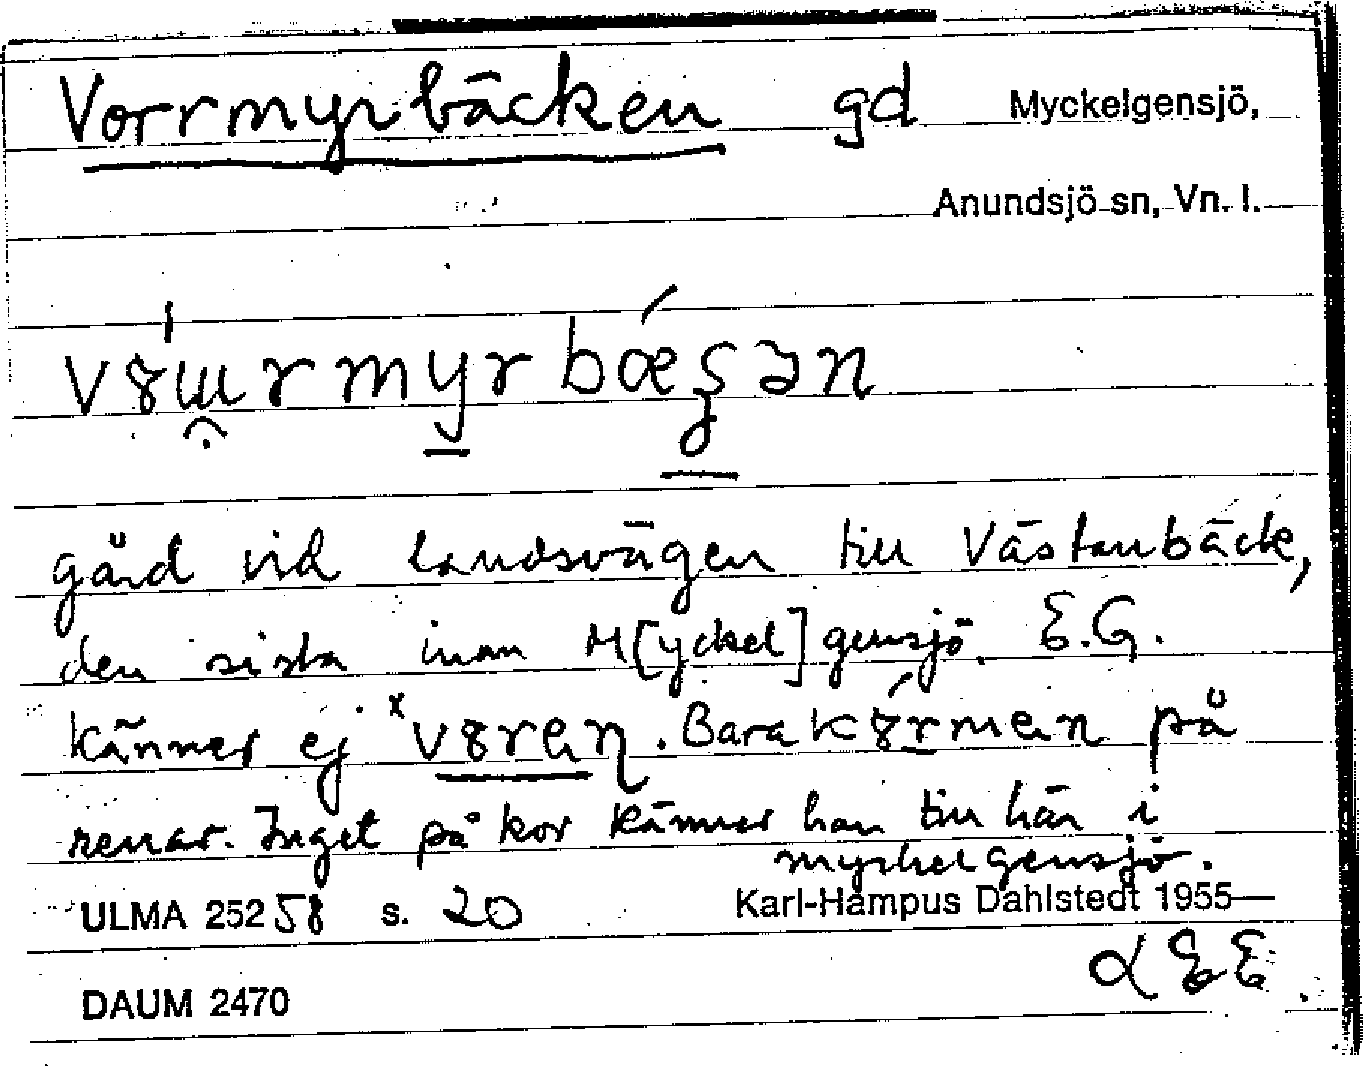 Vorrmyrbäcken gd Myckelgensjö,
Anundsjö sn, Vn. l.
gård vid landsvägen till Västanbäck,
den sista inom M[yckel]gensjö. E.G.
känner ej ˣvȣren. Bara kȣ́rmen på
renar. Inget på kor känner han till här i
Myckelgensjö.
ULMA 25258 s. 20 Karl-Hampus Dahlstedt 1955—
DAUM 2470